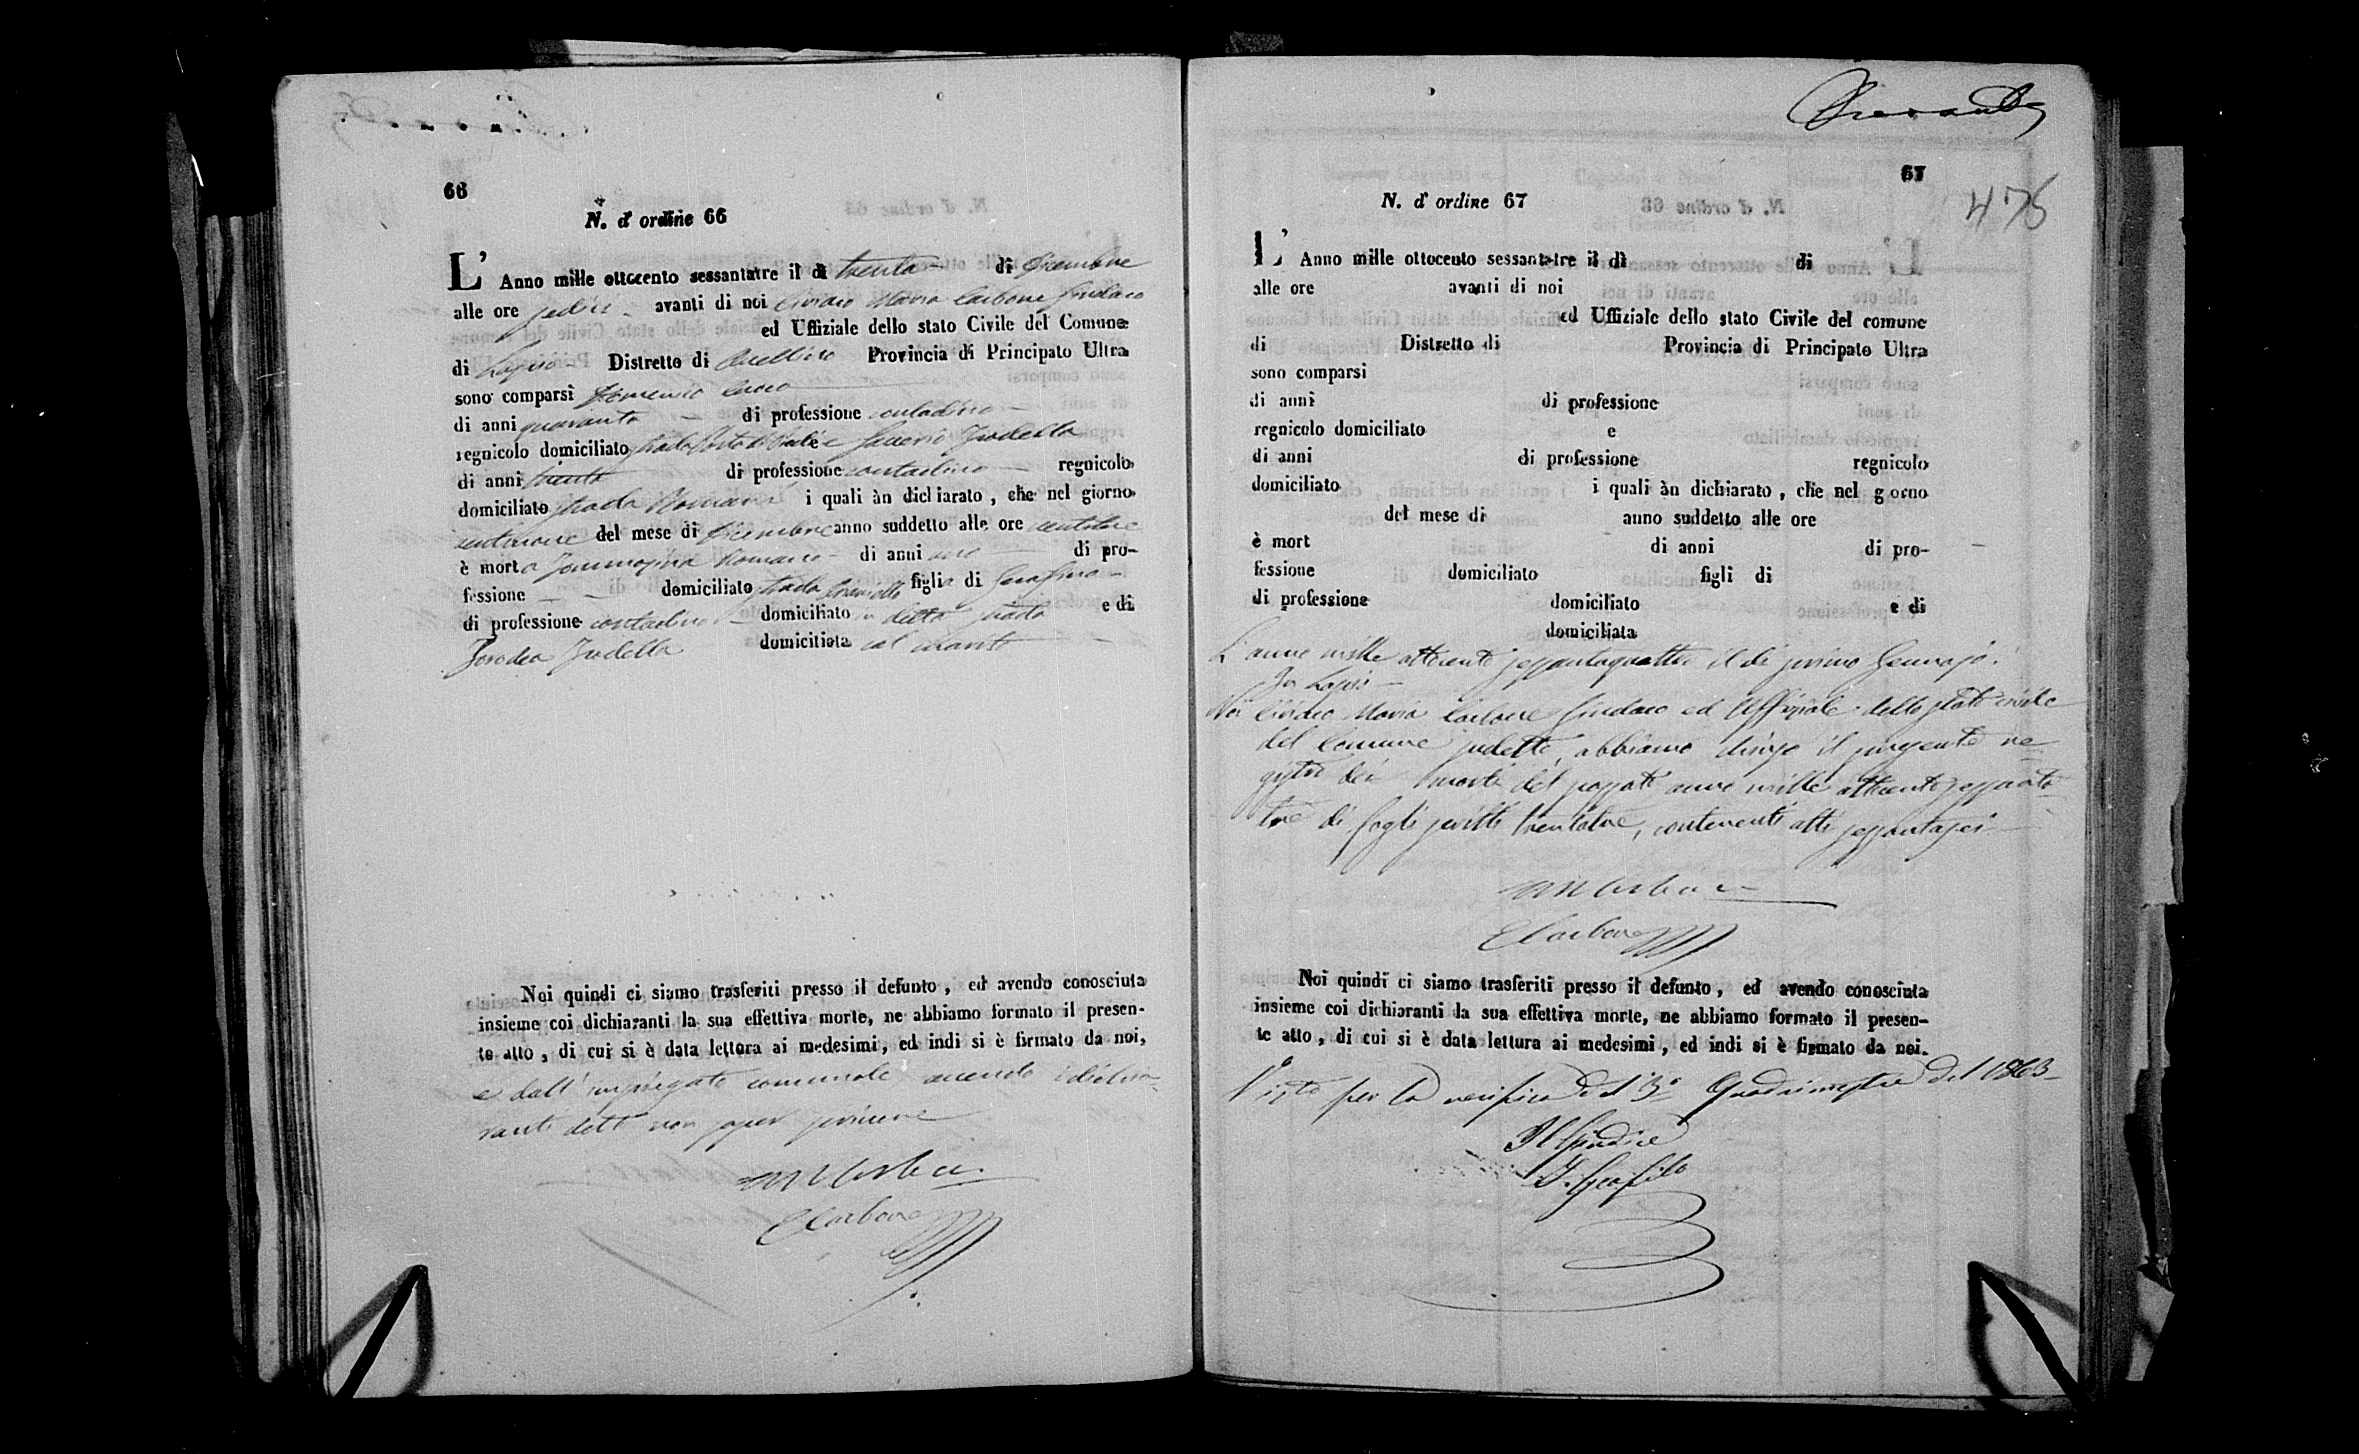 66
N. d' ordine 66
L' Anno mille ottocento sessantatre il dì trenta di Dicembre
alle ore sedici avanti di noi Ovidio Maria Carbone Sindaco
ed Uffiziale dello stato Civile del Comune
di Lapio Distretto di Avellino Provincia di Principato Ultra
sono comparsi Domenico
di anni quaranta di professione contadino
regnicolo domiciliato strada e Saverio Irodella
di anni trenta di professione contadino regnicolo
domiciliato strada Romani i quali àn dichiarato, che nel giorno
ventinove del mese di Dicembre anno suddetto alle ore ventitre
è morta Romano di anni uno di pro-
fessione domiciliato strada figlia di Serafino
di professione contadino domiciliato in detta strada e di
Dorodea Irodella domiciliata col marito
Noi quindi ci siamo trasferiti presso il defunto, ed avendo conosciuta
insieme coi dichiaranti la sua effettiva morte, ne abbiamo formato il presen-
te atto, di cui si è data lettura ai medesimi, ed indi si è firmato da noi,
e dall' impiegato comunale avendo i dichia-
ranti detto non saper scrivere
Carbone
67
476
N. d' ordine 67
L' Anno mille ottocento sessantatre il dì di
alle ore avanti di noi
ed Uffiziale dello stato Civile del comune
di Distretto di Provincia di Principato Ultra
sono comparsi
di anni di professione
regnicolo domiciliato e
di anni di professione regnicolo
domiciliato i quali àn dichiarato, che nel giorno
del mese di anno suddetto alle ore
è mort di anni di pro-
fessione domiciliato figli di
di professione domiciliato e di
domiciliata
L' anno mille ottocento sessantaquattro il dì primo Gennajo.
In Lapio
Noi Ovidio Maria Carbone Sindaco ed Uffiziale dello stato civile
del Comune sudetto, abbiamo chiuso il presente re
gistro dei morti del passato anno mille ottocento sessanta
tre di fogli scritti trentatre, contenenti atti sessantasei
Carbone
Noi quindi ci siamo trasferiti presso il defunto, ed avendo conosciuta
insieme coi dichiaranti la sua effettiva morte, ne abbiamo formato il presen-
te atto, di cui si è data lettura ai medesimi, ed indi si è firmato da noi.
Visto per la verifica del 3° Quadrimestre del 1863
Il Giudice